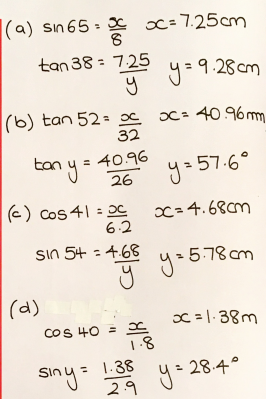 (a) sin 65 = x/8 x = 7.25cm
tan 38 = 7.25/y y = 9.28cm
(b) tan 52 = x/32 x = 40.96mm
tan y = 40.96/26 y = 57.6°
(c) cos 41 = x/6.2 x = 4.68cm
sin 54 = 4.68/y y = 5.78cm
(d)
cos 40 = x/1.8 x = 1.38m
sin y = 1.38/2.9 y = 28.4°